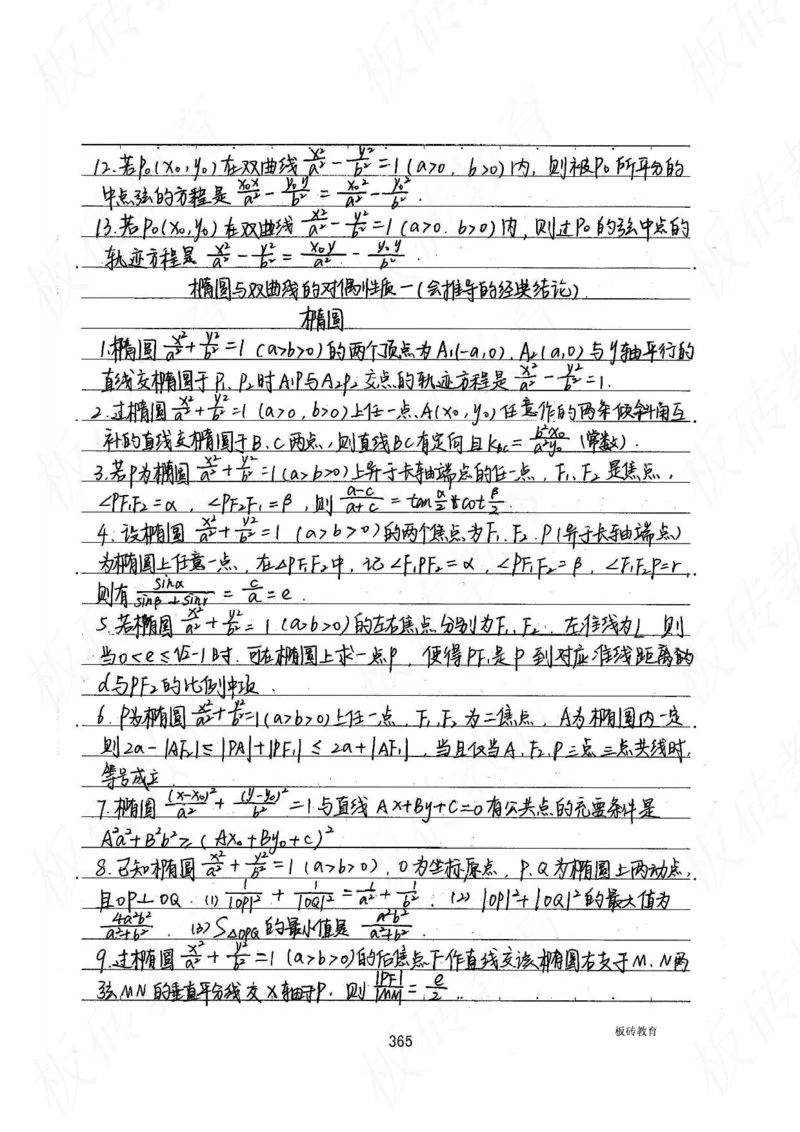 12.若P₀(x₀,y₀)在双曲线 x²/a² - y²/b² =1(a>0, b>0)内, 则被P₀所平分的
中点弦的方程是 x₀x/a² - y₀y/b² = x₀²/a² - y₀²/b² .
13.若P₀(x₀,y₀)在双曲线 x²/a² - y²/b² =1(a>0. b>0)内, 则过P₀的弦中点的
轨迹方程是 x²/a² - y²/b² = x₀y/a² - y₀y/b² .
椭圆与双曲线的对偶性质一(会推导的经典结论)
椭圆
1.椭圆 x²/a² + y²/b² =1 (a>b>0)的两个顶点为A₁(-a,0). A₂(a,0)与y轴平行的
直线交椭圆于P₁、P₂时A₁P₁与A₂P₂交点的轨迹方程是 x²/a² - y²/b² =1.
2.过椭圆 x²/a² + y²/b² =1 (a>0, b>0)上任一点A(x₀,y₀)任意作的两条倾斜角互
补的直线交椭圆于B、C两点,则直线BC有定向且K_BC = b²x₀/a²y₀ (常数).
3.若P为椭圆 x²/a² + y²/b² =1(a>b>0)上异于长轴端点的任一点, F₁、F₂是焦点,
∠PF₁F₂=α, ∠PF₂F₁=β, 则 a-c/a+c = tan α/2 cot β/2 .
4. 设椭圆 x²/a² + y²/b² =1 (a>b>0)的两个焦点为F₁、F₂. P(异于长轴端点)
为椭圆上任意一点, 在△PF₁F₂中, 记∠F₁PF₂=α, ∠PF₁F₂=β, ∠F₁F₂P=r,
则有 sinα/sinβ+sinr = c/a = e .
5.若椭圆 x²/a² + y²/b² =1 (a>b>0)的左右焦点分别为F₁、F₂, 左准线为L 则
当0<e≤√2-1时. 可在椭圆上求一点P, 使得PF₁是P到对应准线距离的
d与PF₂的比例中项.
6. P为椭圆 x²/a² + y²/b² =1(a>b>0)上任一点, F₁,F₂为二焦点, A为椭圆内一定
则2a-|AF₂|≤|PA|+|PF₁|≤2a+|AF₁|, 当且仅当A、F₂、P三点三点共线时,
等号成立
7.椭圆 (x-x₀)²/a² + (y-y₀)²/b² =1与直线Ax+By+C=0有公共点的充要条件是
A²a²+B²b²≥(Ax₀+By₀+c)²
8.已知椭圆 x²/a² + y²/b² =1(a>b>0), O为坐标原点, P、Q为椭圆上两动点,
且OP⊥OQ. (1) 1/|OP|² + 1/|OQ|² = 1/a² + 1/b² . (2) |OP|²+|OQ|²的最大值为
4a²b²/a²+b² . (3) S△OPQ的最小值是 a²b²/a²+b² .
9.过椭圆 x²/a² + y²/b² =1 (a>b>0)的右焦点F作直线交该椭圆右支于M、N两
弦MN的垂直平分线交x轴于P. 则 |PF|/|MN| = e/2 .
板砖教育
365